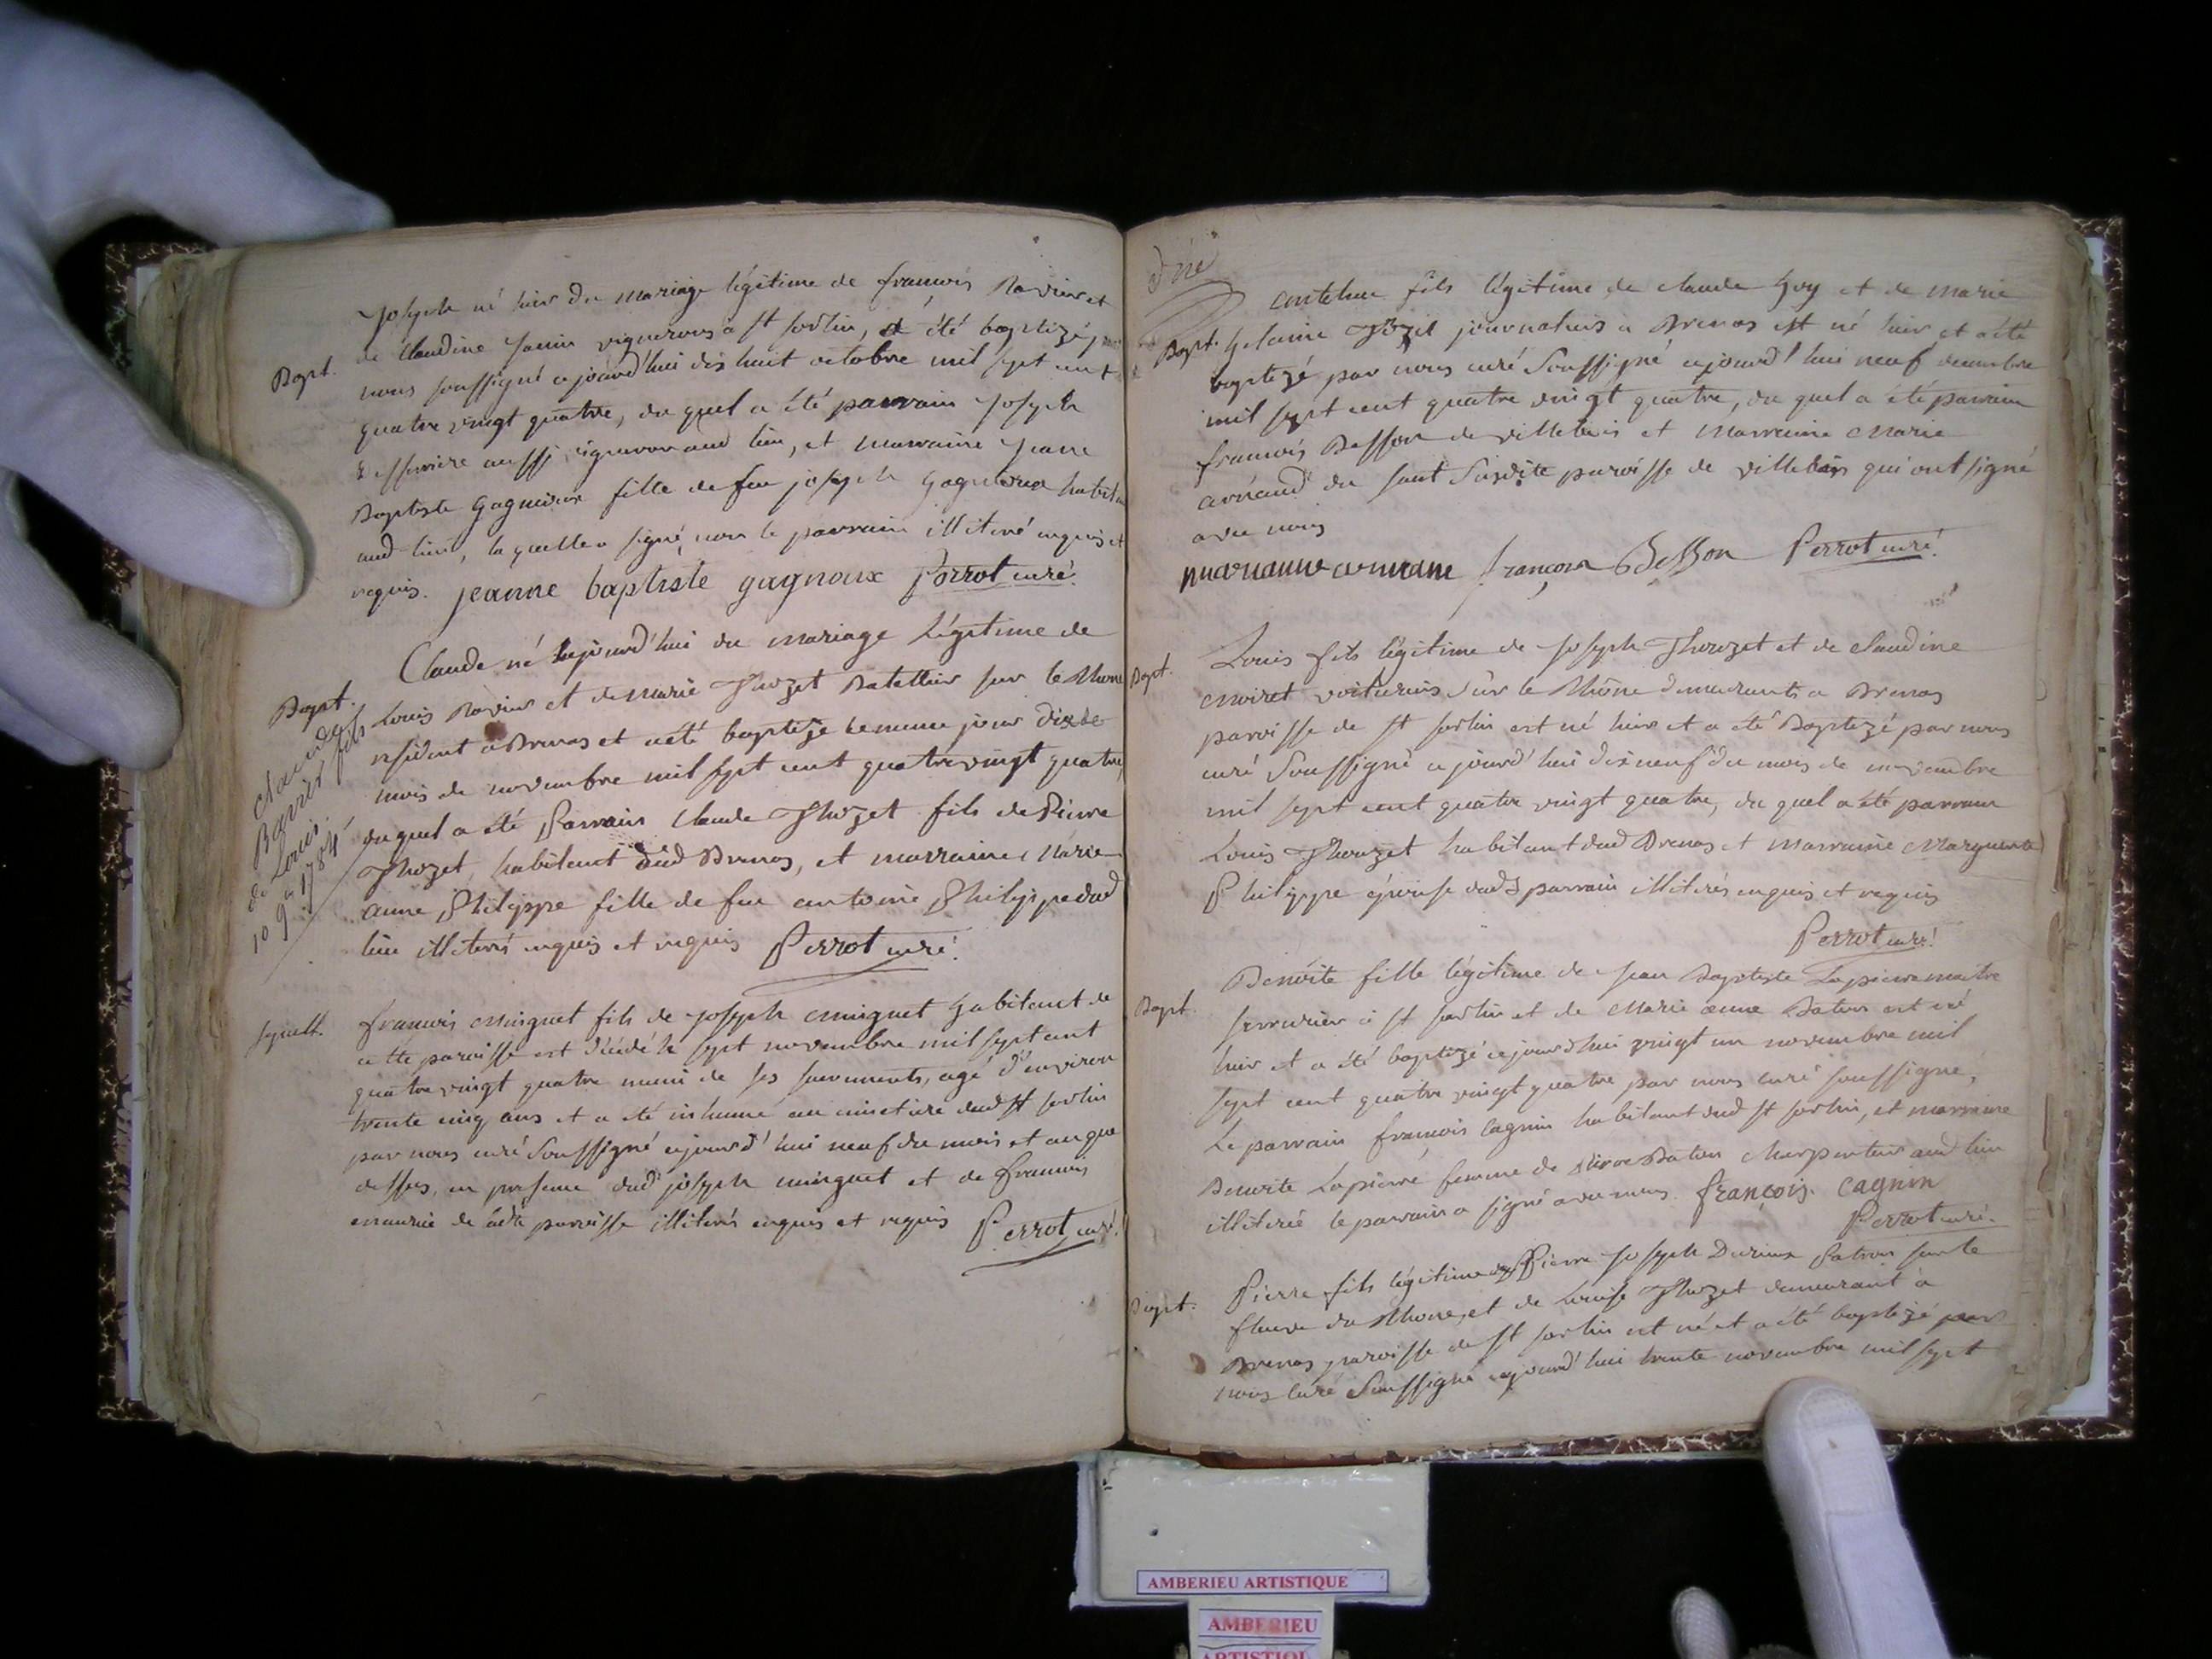 Joseph né hier du mariage légitime de francois Ravier et
Bapt. de Claudine Janin vignerons à st sorlin, et été baptizé par
nous soussigné ajourd'hui dix huit octobre mil sept cent
quatre vingt quatre, du quel a été parrain joseph
aussi vigneron aud lieu, et marraine jeane
Baptiste Gagneux fille de feu joseph Gagneux habita
aud lieu, laquelle a signé, non le parrain illiteré enquis et
requis. jeanne baptiste gagnoux Perrot curé.
Claude né aujourd'hui du mariage légitime de
Bapt. Louis Ravier et de marie Thozet Batellier sur le Rhone
claude
Ravier fils
de Louis.
10 9bre 1784
résident a Brenas et a été baptizé le meme jour dix de
mois de novembre mil sept cent quatre vingt quatre,
du quel a été parrain Claude Thozet fils de Pierre
Thozet, habitant dud Brenas, et marraine Marie
anne Philippe fille de feu antoine Philippe dud
lieu illiterés enquis et requis Perrot curé.
Sepult. francois minguet fils de joseph minguet habitant de
cette paroisse est décédé le sept novembre mil sept cent
quatre vingt quatre muni de ses sacrements, agé d'environ
trente cinq ans et a été inhumé au cimetiere dud st sorlin
par nous curé soussigné ajourd'hui neuf du mois et an que
dessus, en presence dud joseph minguet et de francois
de lade paroisse illiterés enquis et requis Perrot curé.
antelme fils légitime de claude Goy et de marie
Bapt. journaliers a Brenas est né hier et a été
baptizé par nous curé soussigné ajourd'hui neuf
mil sept cent quatre vingt quatre, du quel a été parrain
francois Besson de villebois et marraine Marie
du sault susdite paroisse de villebois qui ont signé
avec nous
françois Besson Perrot curé.
Bapt. Louis fils légitime de joseph Thouzet et de claudine
moiret voituriers sur le Rhône demeurants a Brenas
paroisse de st sorlin est né hier et a été Baptizé par nous
curé soussigné ajourd'hui dix neuf du mois de novembre
mil sept cent quatre vingt quatre, du quel a été parrain
Louis Thouzet habitant dud Brenas et marraine Marguerite
Philippe épouse dud parrain illiterés enquis et requis
Perrot curé.
Benoite fille légitime de jean Baptiste Lapierre maitre
Bapt. serrurier à st sorlin et de Marie anne Baton est né
hier et a été baptizé ajourd'hui vingt un novembre mil
sept cent quatre vingt quatre par nous curé soussigné,
Le parrain francois cagnin habitant dud st sorlin, et marraine
Benoite Lapierre femme de Pierre Baton charpentier aud lieu
illiterée le parrain a signé avec nous. françois. cagnin
Perrot curé.
Bapt. Pierre fils légitime de Pierre joseph Durieux Patron sur le
fleuve du Rhone, et de Louise Thozet demeurant à
Brenas paroisse de st sorlin est né et a été baptizé par
nous curé soussigné ajourd'hui trente novembre mil sept
AMBERIEU ARTISTIQUE
AMBERIEU
ARTISTIQU